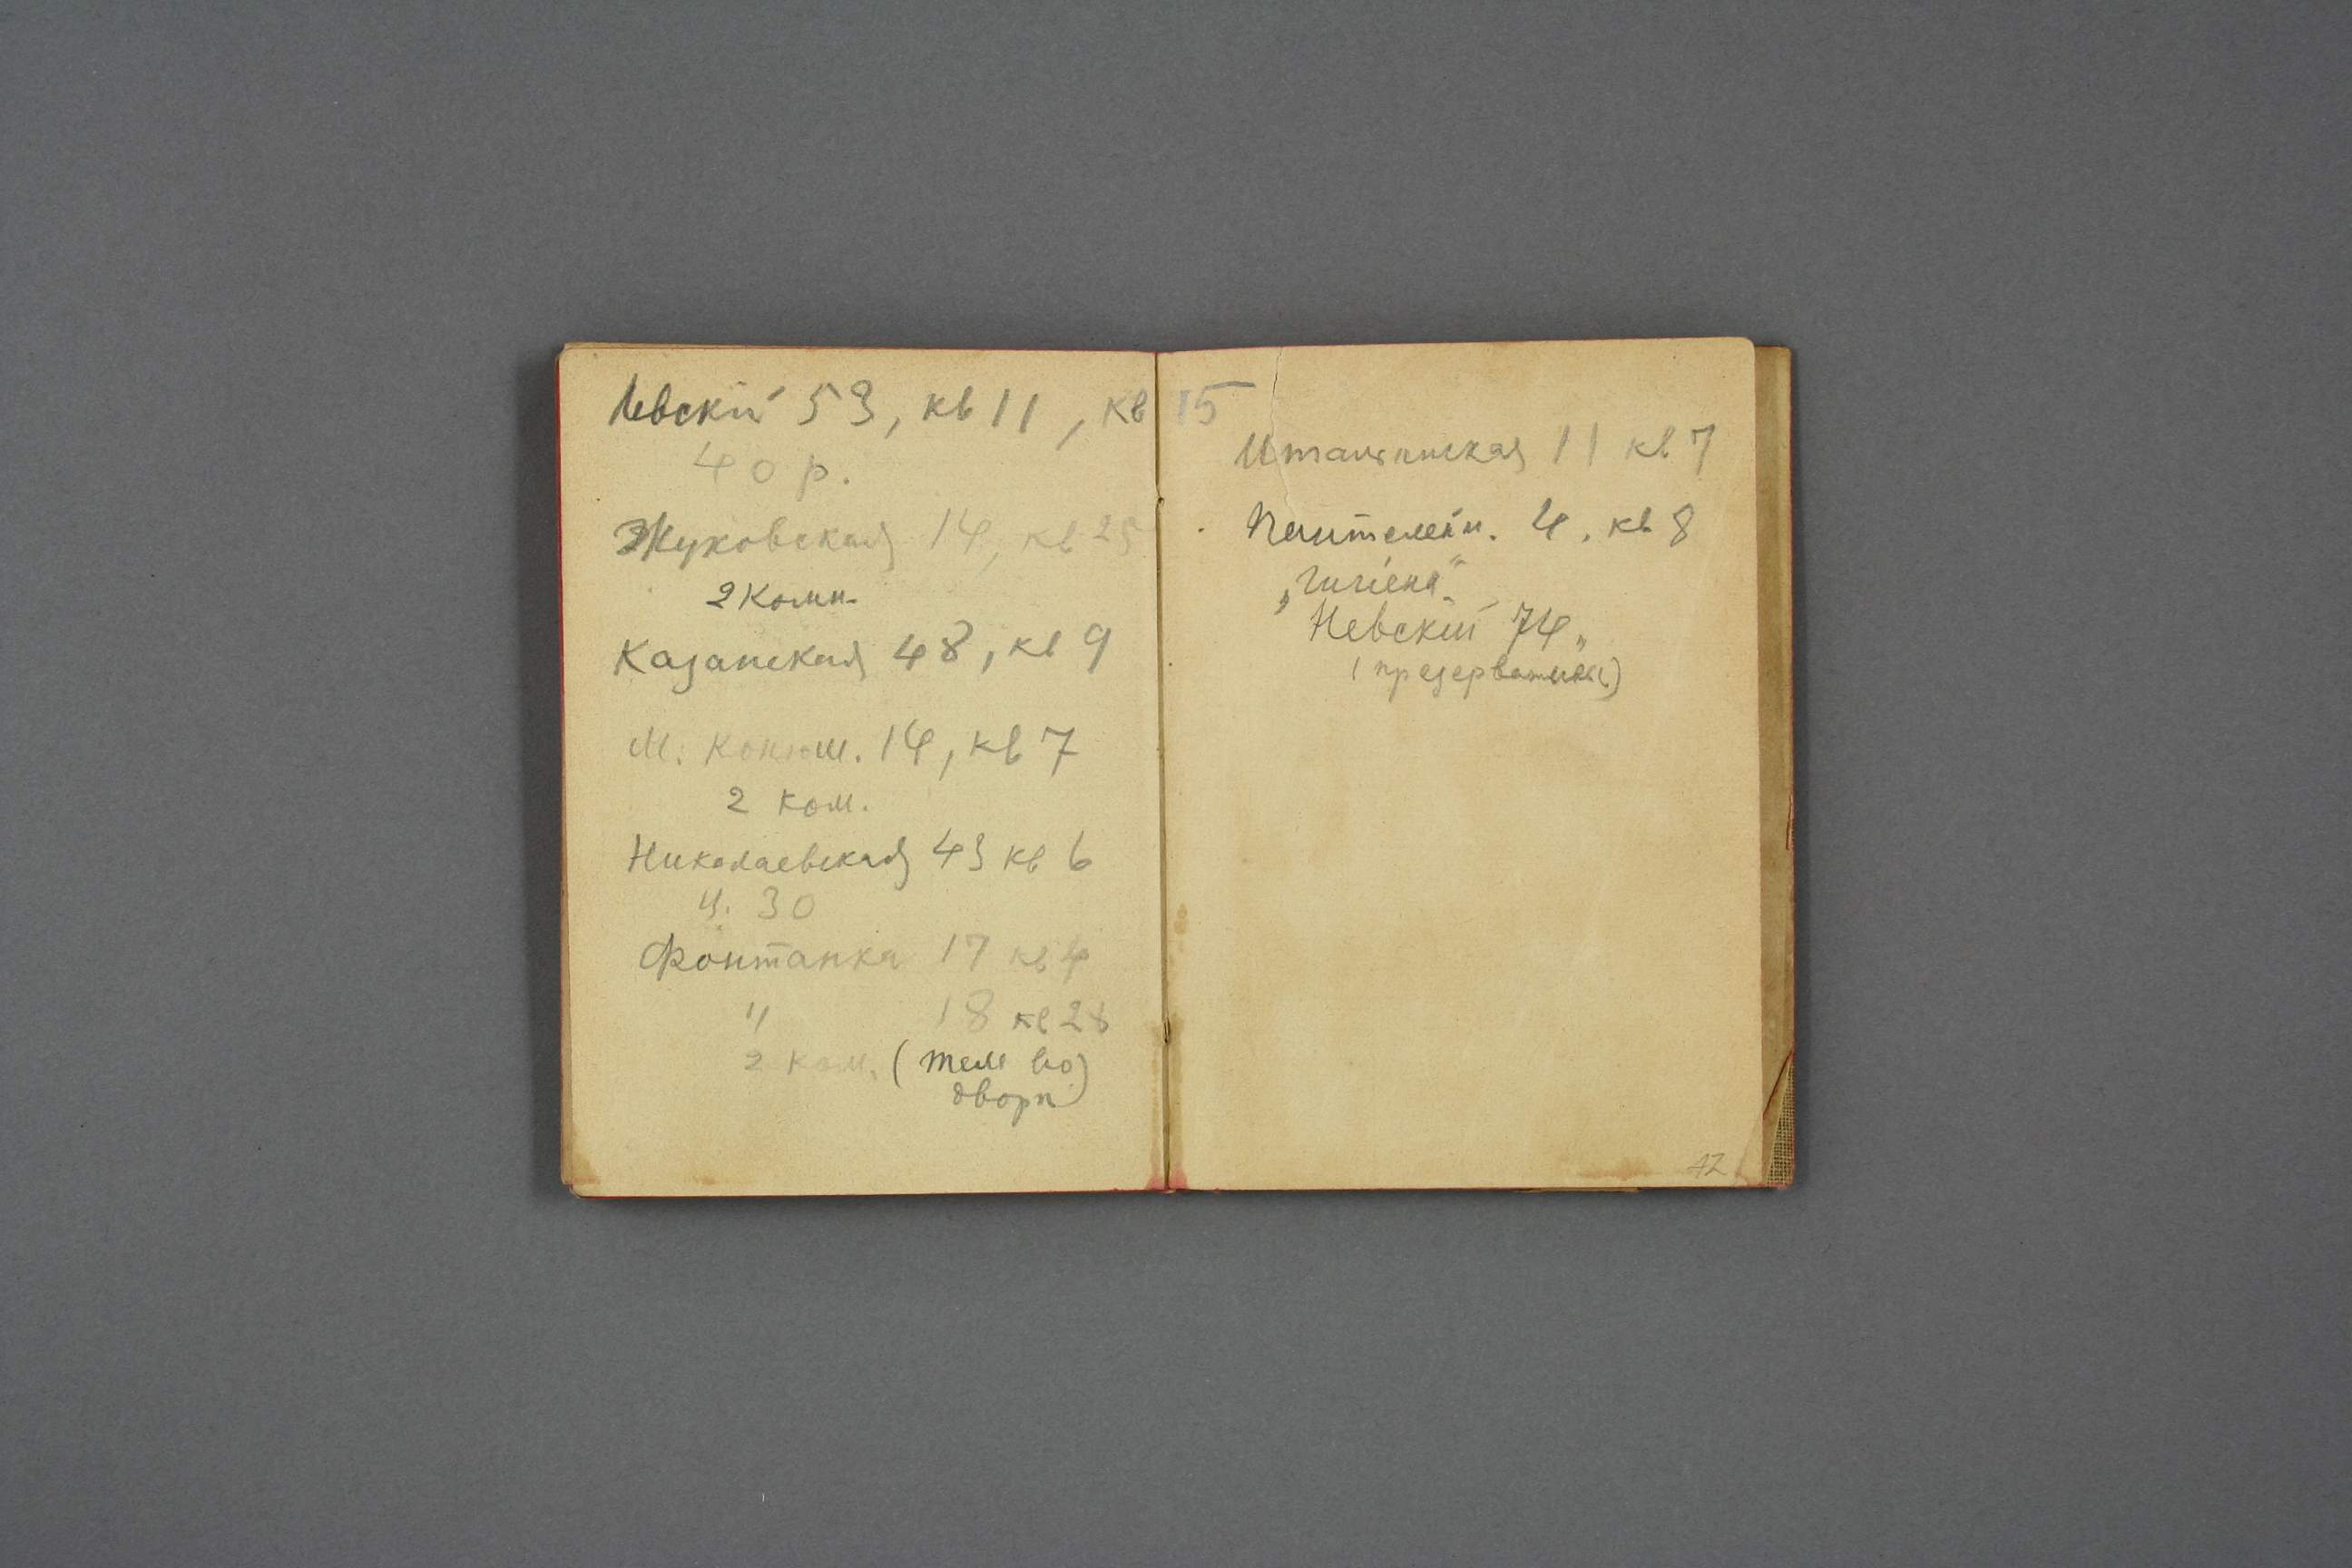 Невскій 53, кв 11, кв 15
40 р.
Жуковская 14, кв 25
2 комн.
Казанская 48, кв 9
М. Конюш. 14, кв 7
2 ком.
Николаевская 43 кв 6
ц. 30
Фонтанка 17 кв 4
" 18 кв 28
2 ком. (тел во
дворѣ)
Итальянская 11 кв 7
Пантелейм. 4. кв 8
„Гигіена"
Невскій 74„
(презервативы)
12